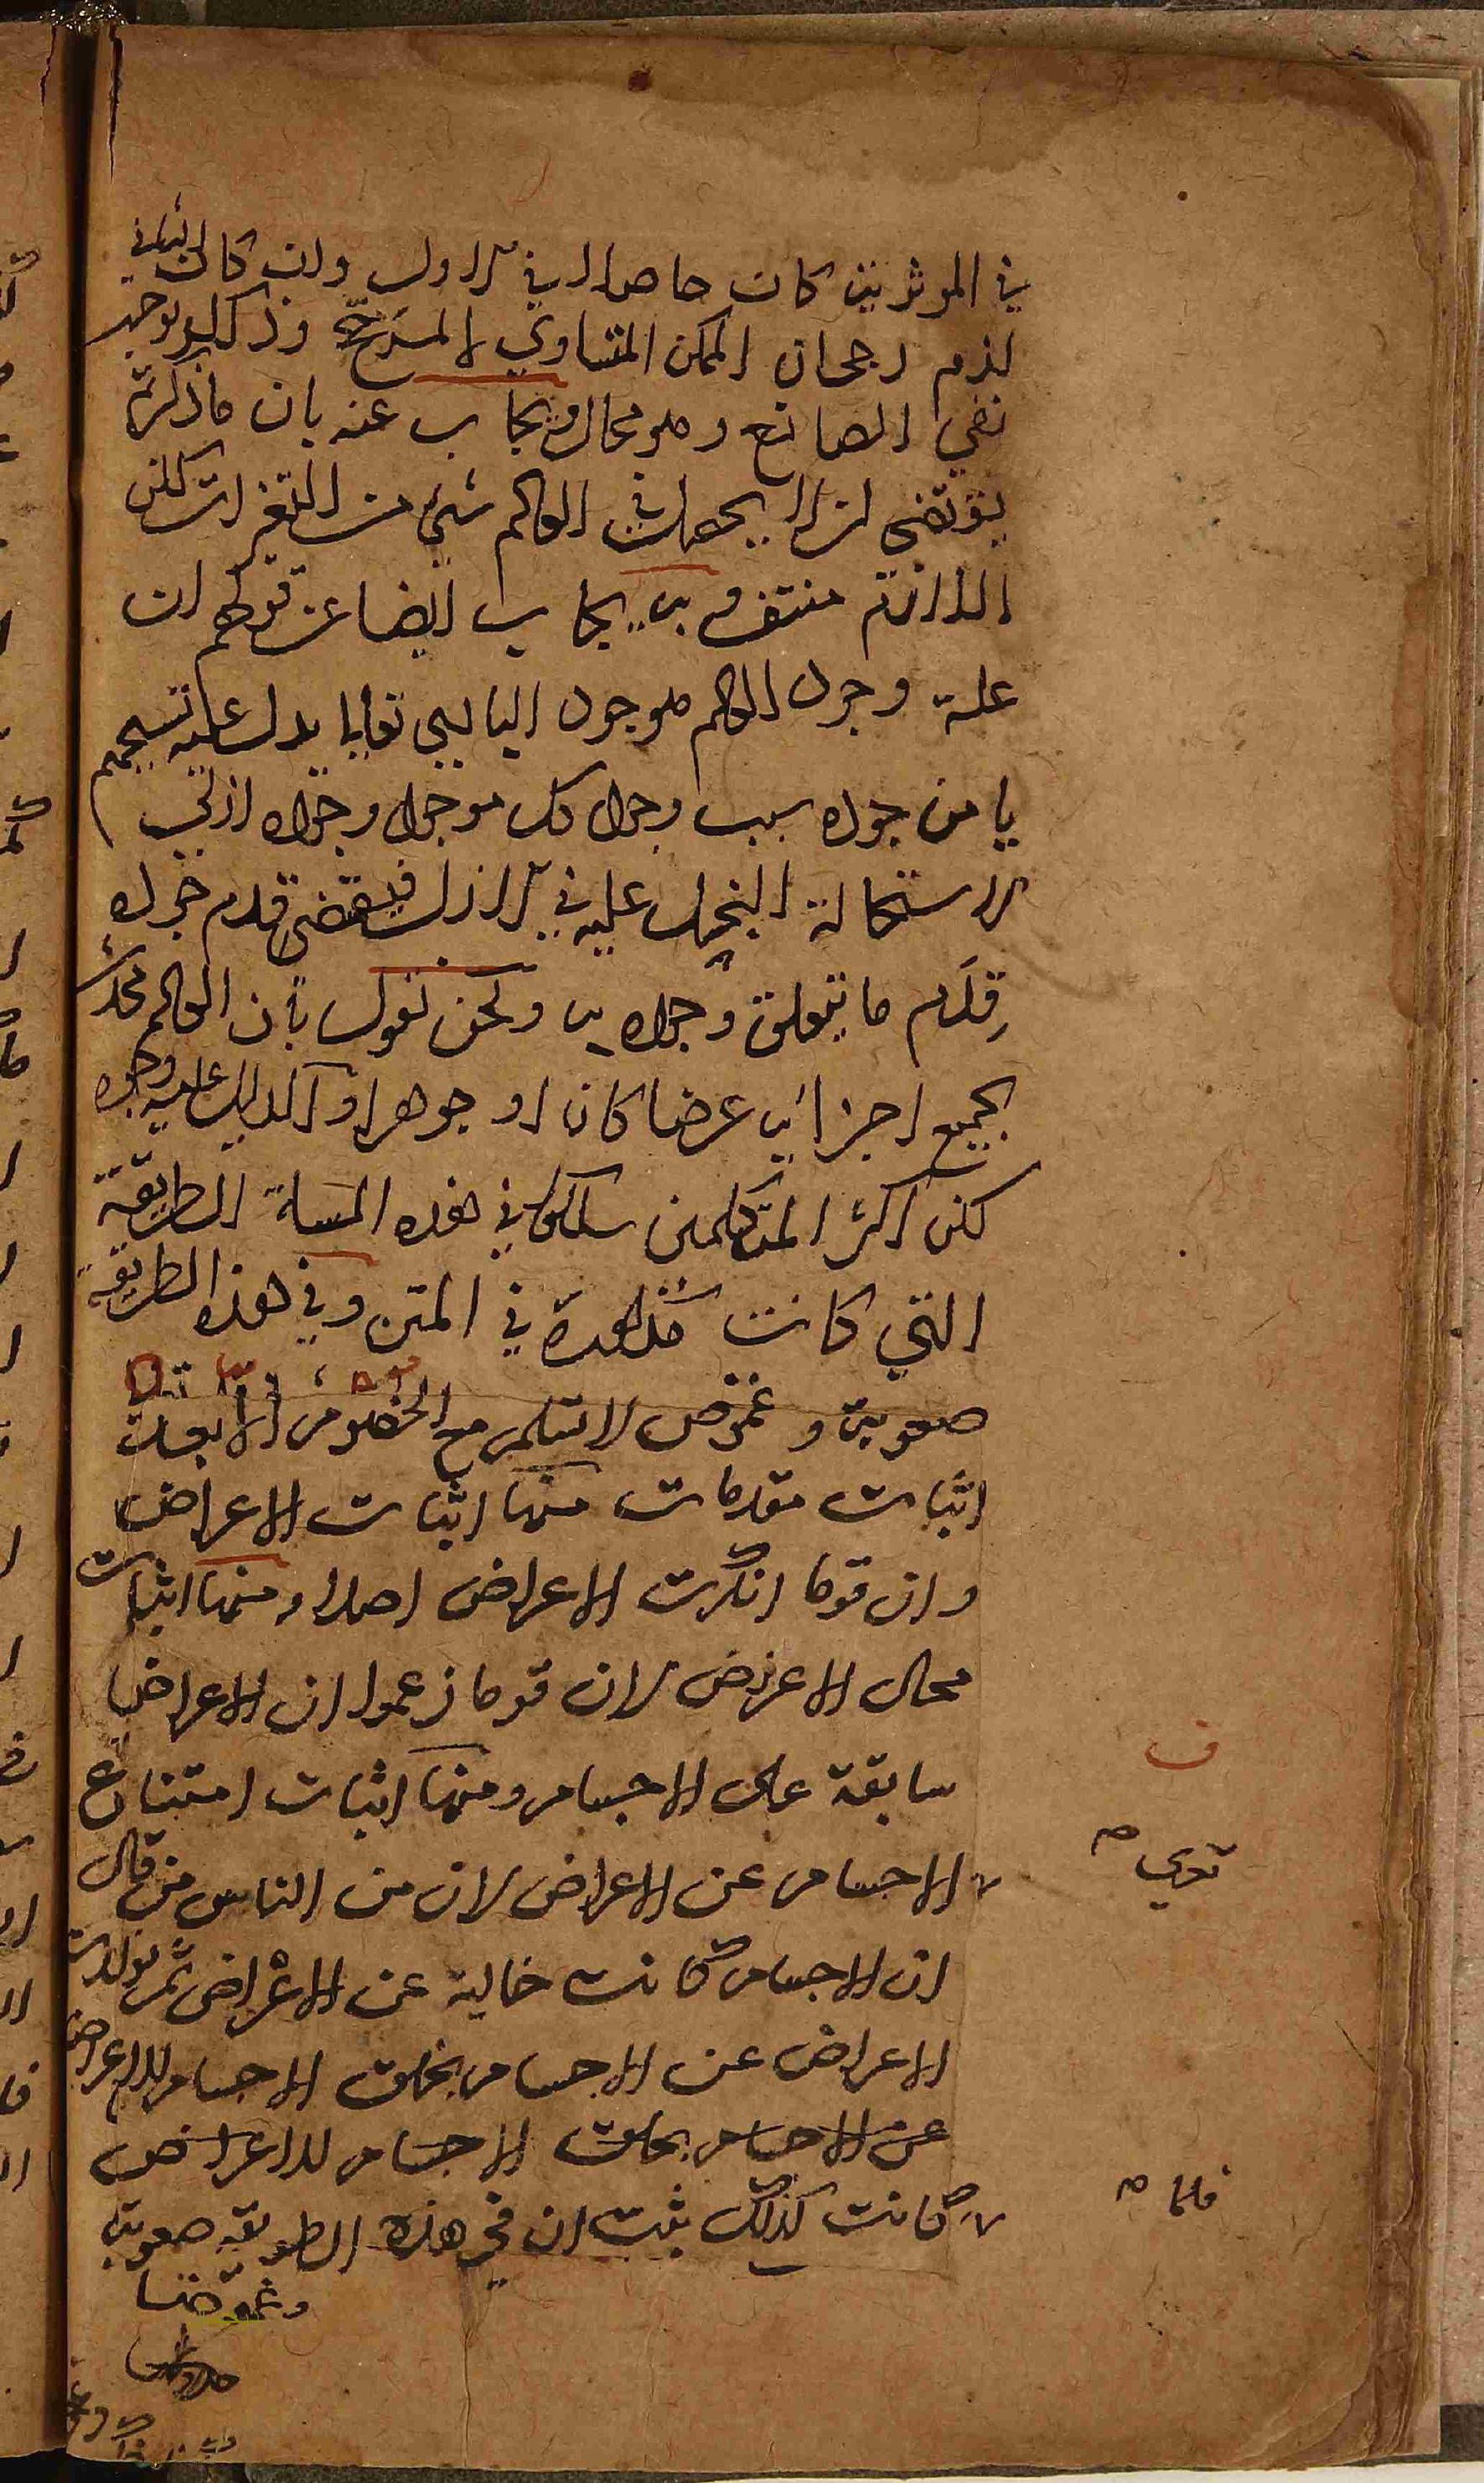 في الموثرية كان حاصلا في الاول وان كان الثاني
لزم رجحان الممكن المتساوي لا لمرجح وذلك يوجب
نفي الصانع وهو محال ويجاب عنه بان ما ذكرتم
يقتضي ان لا يحصل في العالم شيء من التغيرات لكن
اللازم منتف وبه يجاب ايضا عن قولهم ان
علة وجود العالم موجود الباري تعالى يدل عليه تسميتهم
يا من جوده سبب وجود كل موجود وجوده ازلي
لاستحالة البخل عليه في الازل فيقتضي قدم جوده
قِدَم ما يتعلق وجوده به ونحن نقول بأن العالم محدث
بجميع اجزائه عرضا كان او جوهرا والدليل عليه وجوه
لكن اكثر المتكلمين سلكوا في هذه المسألة الطريقة
التي كانت مذكورة في المتن وفي هذه الطريقة
صعوبة وغموض لا تسلم مع الخصوم الا بعد
اثبات مقدمات منها اثبات الاعراض
وان قوما انكرت الاعراض اصلا ومنها اثبات
محال الاعراض لان قوما زعموا ان الاعراض
سابقة على الاجسام ومنها اثبات امتناع
تعري
الاجسام عن الاعراض لان من الناس من قال
ان الاجسام كانت خالية عن الاعراض ثم تولدت
الاعراض عن الاجسام بخلق الاجسام للاعراض
عن الاجسام بخلق الاجسام للاعراض
فلما
كانت كذلك ثبت ان في هذه الطريقة صعوبة
وغموضا